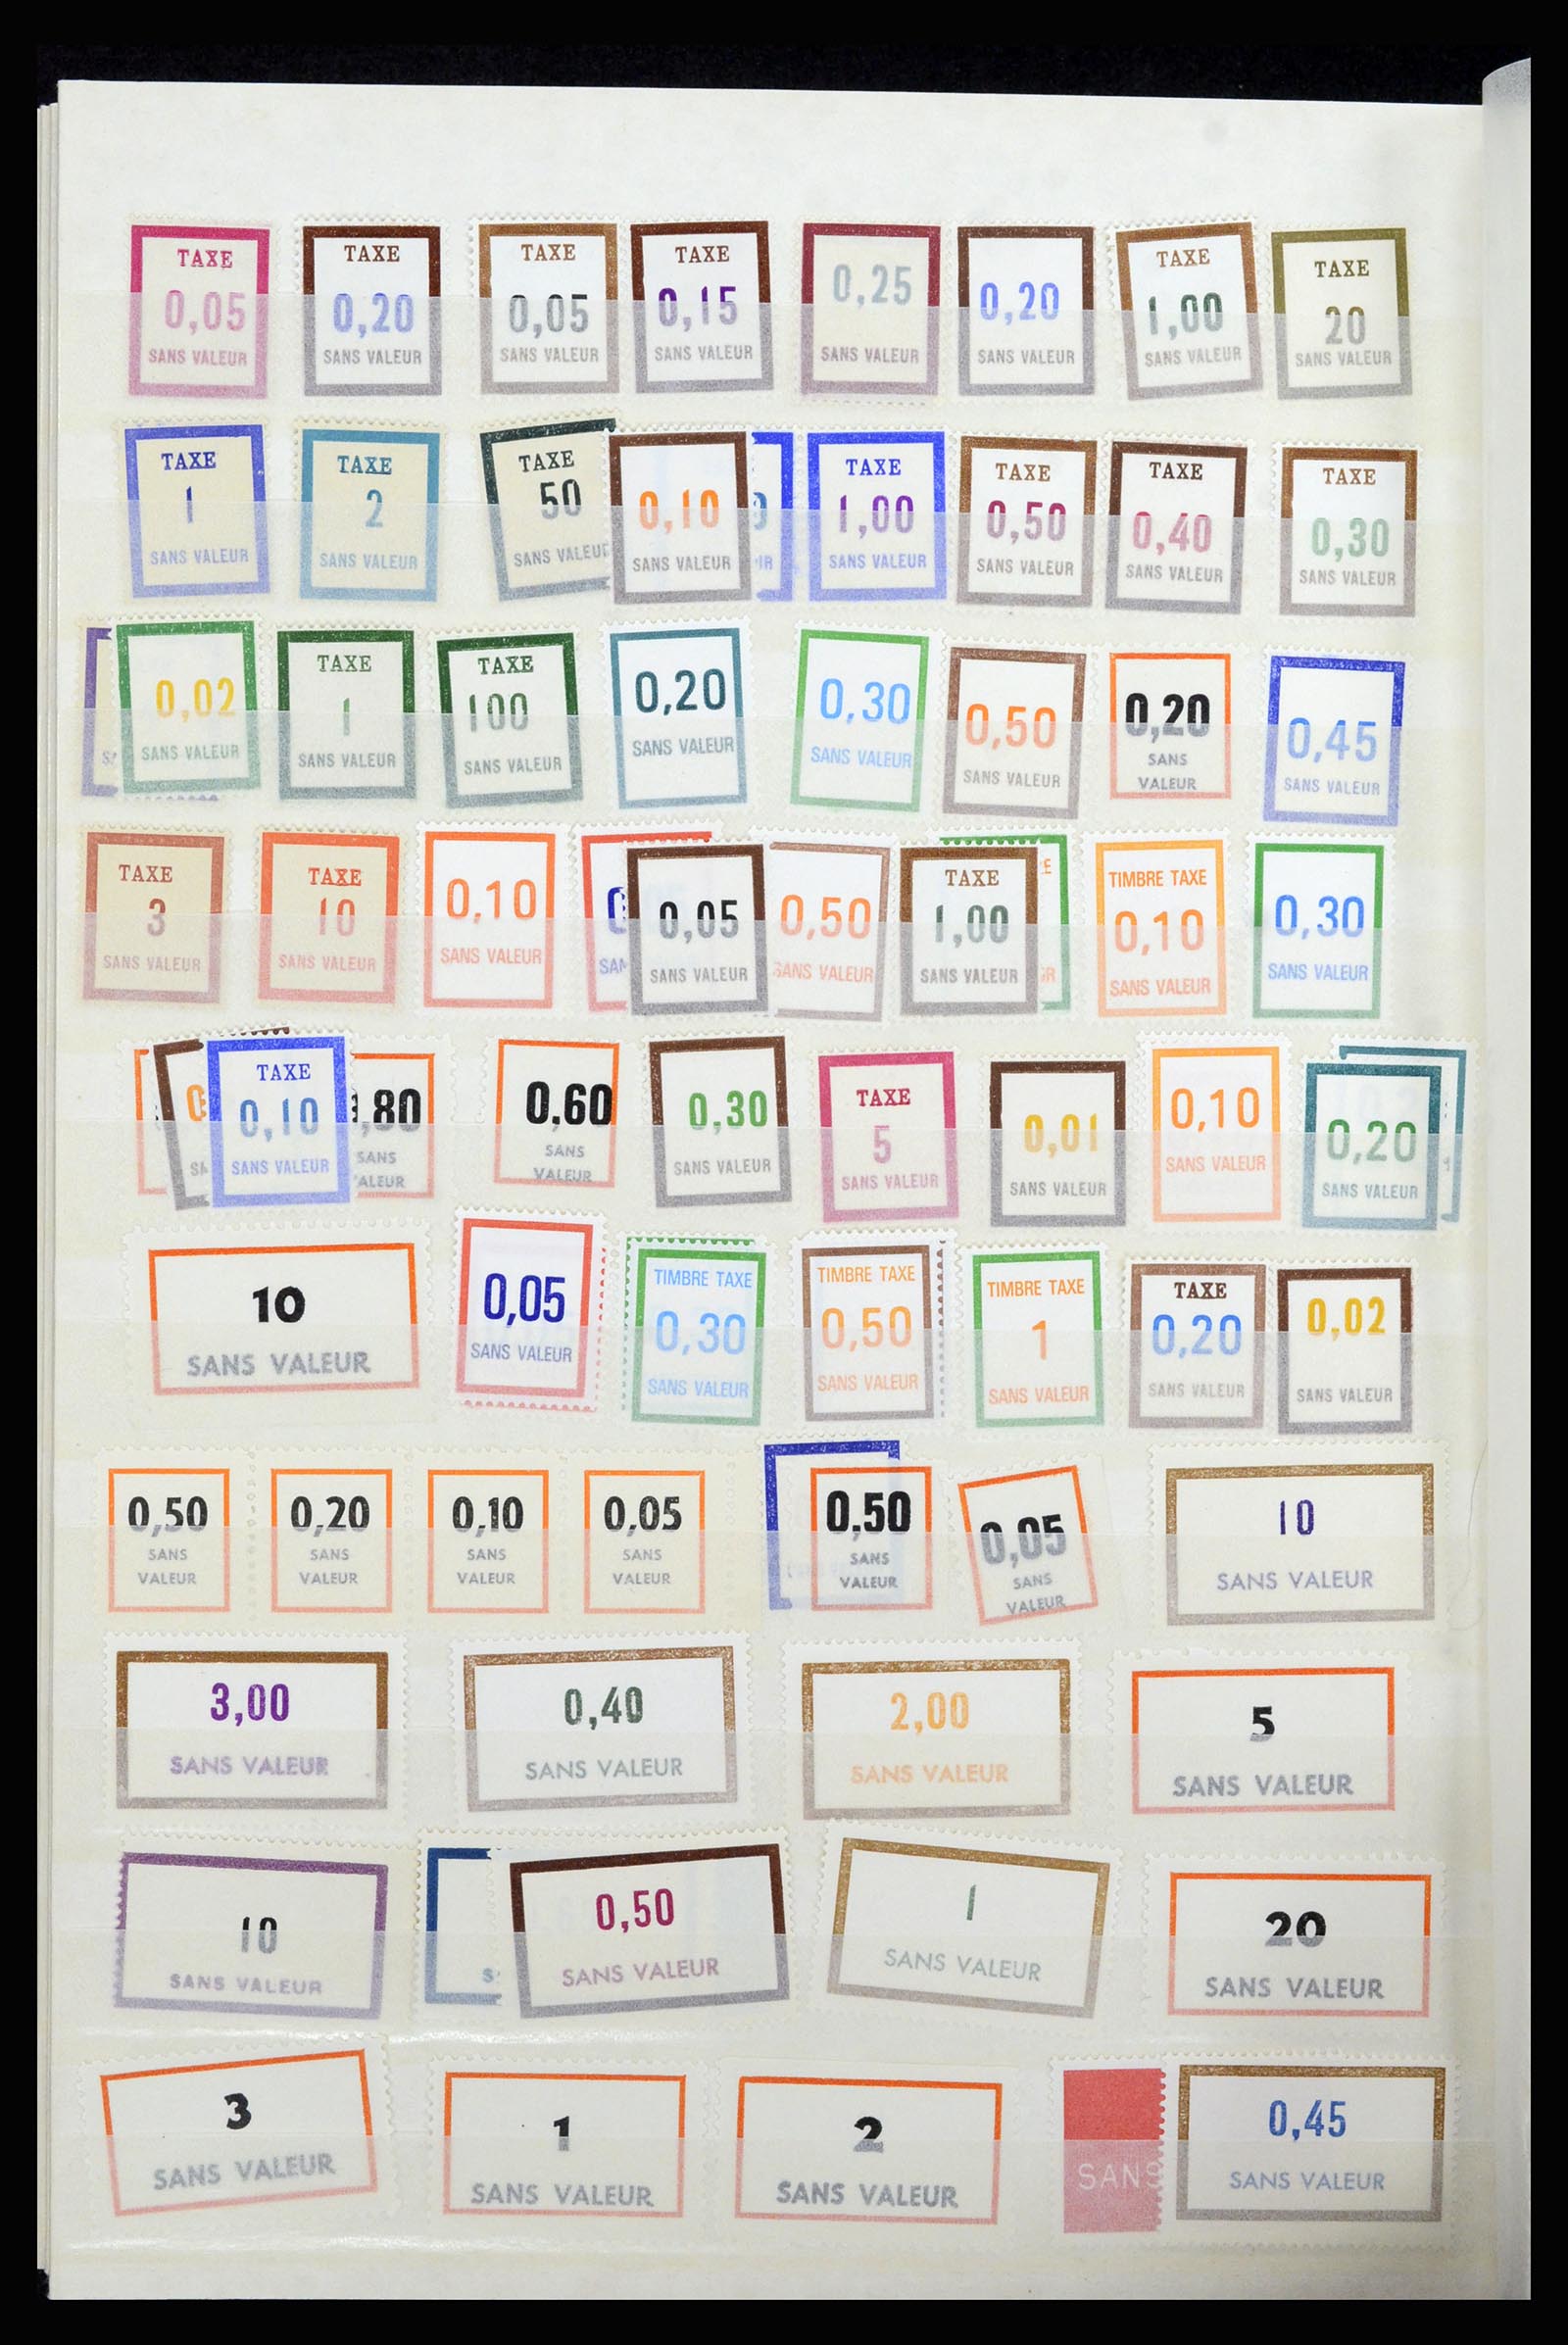 TAXE
0,05
SANS VALEUR
TAXE
0,20
SANS VALEUR
TAXE
0,05
SANS VALEUR
TAXE
0,15
SANS VALEUR
0,25
SANS VALEUR
0,20
SANS VALEUR
TAXE
1,00
SANS VALEUR
TAXE
20
SANS VALEUR
TAXE
1
SANS VALEUR
TAXE
2
SANS VALEUR
TAXE
50
SANS VALEUR
0,10
SANS VALEUR
TAXE
1,00
SANS VALEUR
TAXE
0,50
SANS VALEUR
TAXE
0,40
SANS VALEUR
TAXE
0,30
SANS VALEUR
0,02
SANS VALEUR
TAXE
1
SANS VALEUR
TAXE
100
SANS VALEUR
0,20
SANS VALEUR
0,30
SANS VALEUR
0,50
SANS VALEUR
0,20
SANS
VALEUR
0,45
SANS VALEUR
TAXE
3
SANS VALEUR
TAXE
10
SANS VALEUR
0,10
SANS VALEUR
0,05
SANS VALEUR
0,50
SANS VALEUR
TAXE
1,00
SANS VALEUR
TIMBRE TAXE
0,10
SANS VALEUR
0,30
SANS VALEUR
TAXE
0,10
SANS VALEUR
,80
SANS
ALEUR
0.60
SANS
VALEUR
0,30
SANS VALEUR
TAXE
5
SANS VALEUR
0,01
SANS VALEUR
0,10
SANS VALEUR
0,20
SANS VALEUR
10
SANS VALEUR
0,05
SANS VALEUR
TIMBRE TAXE
0,30
SANS VALEUR
TIMBRE TAXE
0,50
SANS VALEUR
TIMBRE TAXE
1
SANS VALEUR
TAXE
0,20
SANS VALEUR
0,02
SANS VALEUR
0,50
SANS
VALEUR
0,20
SANS
VALEUR
0,10
SANS
VALEUR
0,05
SANS
VALEUR
0.50
SANS
VALEUR
0,05
SANS
VALEUR
10
SANS VALEUR
3,00
SANS VALEUR
0,40
SANS VALEUR
2,00
SANS VALEUR
5
SANS VALEUR
10
SANS VALEUR
0,50
SANS VALEUR
1
SANS VALEUR
20
SANS VALEUR
3
SANS VALEUR
1
SANS VALEUR
2
SANS VALEUR
SAN
0,45
SANS VALEUR